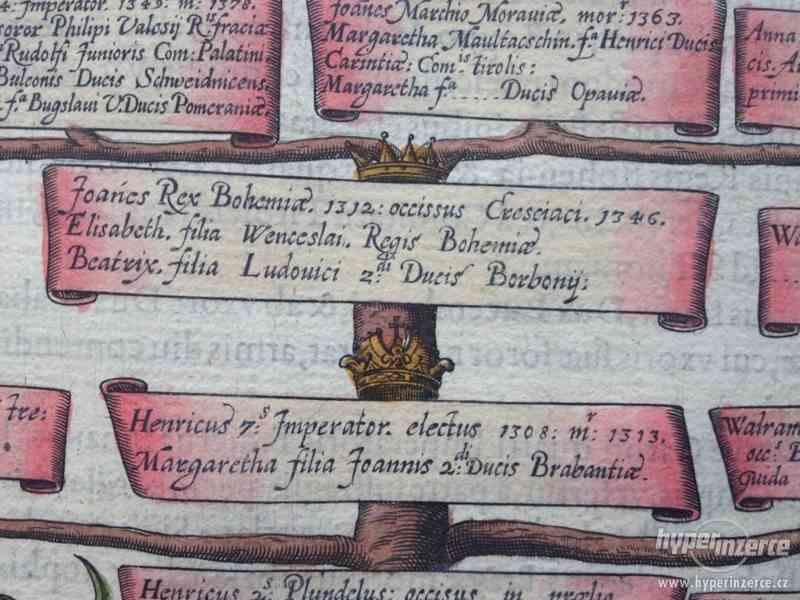 4. Imperator. 1349: m: 1378.
soror Philipi Valesij R.is fraciæ
Rudolfi Junioris Com: Palatini.
Bulconis Ducis Schweidnicens.
f.a Bugslaui V. Ducis Pomeraniæ.
Joańes Marchio Morauiæ, mor.r 1363.
Margaretha Maultaeschin. f.a Henrici Ducis
Carintiæ: Com.is tirolis:
Margaretha f.a ..... Ducis Opauiæ.
Anna
cis. Au
primi
Joańes Rex Bohemiæ. 1312: occissus Cresciaci. 1346.
Elisabeth. filia Wenceslai. Regis Bohemiæ.
Beatrix. filia Ludouici 2.di Ducis Borbonij:
Henricus 7.s Imperator. electus 1308: m.r 1313.
Margaretha filia Joannis 2.di Ducis Brabantiæ.
tre:
Walram
occ.s
Guida
Henricus 2.s Plundelus: occisus in prœlia
hyperinzerce
www.hyperinzerce.cz